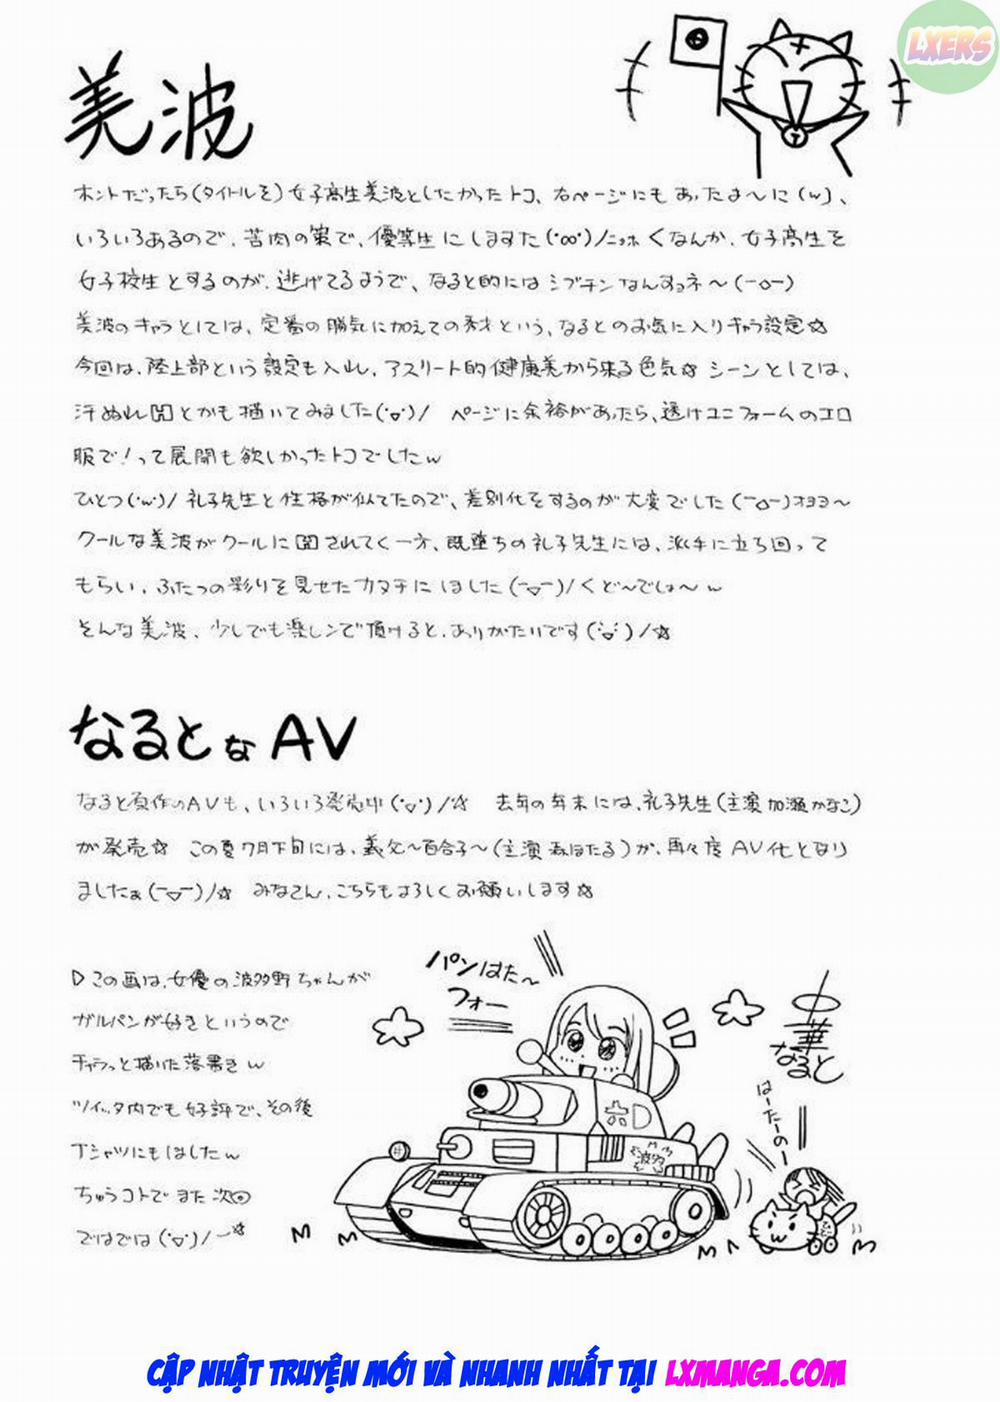 LXERS
美波
ホントだったら(タイトルを)女子高生美波としたかったトコ、右ページにもあったよ〜に(w)、
いろいろあるので、苦肉の策で、優等生にしますた(°∞°)/ニッホ くなんか、女子高生を
女子校生とするのが、逃げてるようで、なると的にはシブチンなんすョネ〜(ーoー)
美波のキャラとしては、定番の勝気に加えての秀才という、なるとのお気に入りキャラ設定☆
今回は、陸上部という設定も入れ、アスリート的健康美から来る色気☆ シーンとしては、
汗ぬれ図とかも描いてみました(°▽°)/ ページに余裕があったら、透けユニフォームのエロ
服で!って展開も欲しかったトコでしたw
ひとつ(°w°)/ 礼子先生と性格が似てたので、差別化をするのが大変でした(ーoー)オヨヨ〜
クールな美波がクールに されてく一方、既堕ちの礼子先生には、派手に立ち回って
もらい、ふたつの彩りを見せたカタチにしました(ー▽ー)/くど〜でしょ〜w
そんな美波、少しでも楽しンで頂けると、ありがたいです(°▽°)/☆
なるとなAV
なると原作のAVも、いろいろ発売中(°▽°)/☆ 去年の年末には、礼子先生(主演 加瀬かなこ)
が発売☆ この夏7月下旬には、義父〜百合子〜(主演 森ほたる)が、再々度AV化となり
ましたぁ(ー▽ー)/☆ みなさん、こちらもよろしくお願いします☆
▷この画は、女優の波多野ちゃんが
ガルパンが好きというので
チャラっと描いた落書きw
ツイッタ内でも好評で、その後
Tシャツにもしましたw
ちゅうコトでまた次回
ではでは(°▽°)/ー☆
パンはた〜
フォー
中華
なると
はーたーのー
CẬP NHẬT TRUYỆN MỚI VÀ NHANH NHẤT TẠI LXMANGA.COM